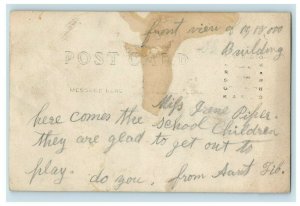 front view of 19,18,000
Building
POST CARD
MESSAGE HERE
Miss Jane Piper.
here comes the school Children
they are glad to get out to
play. do you. from Aunt